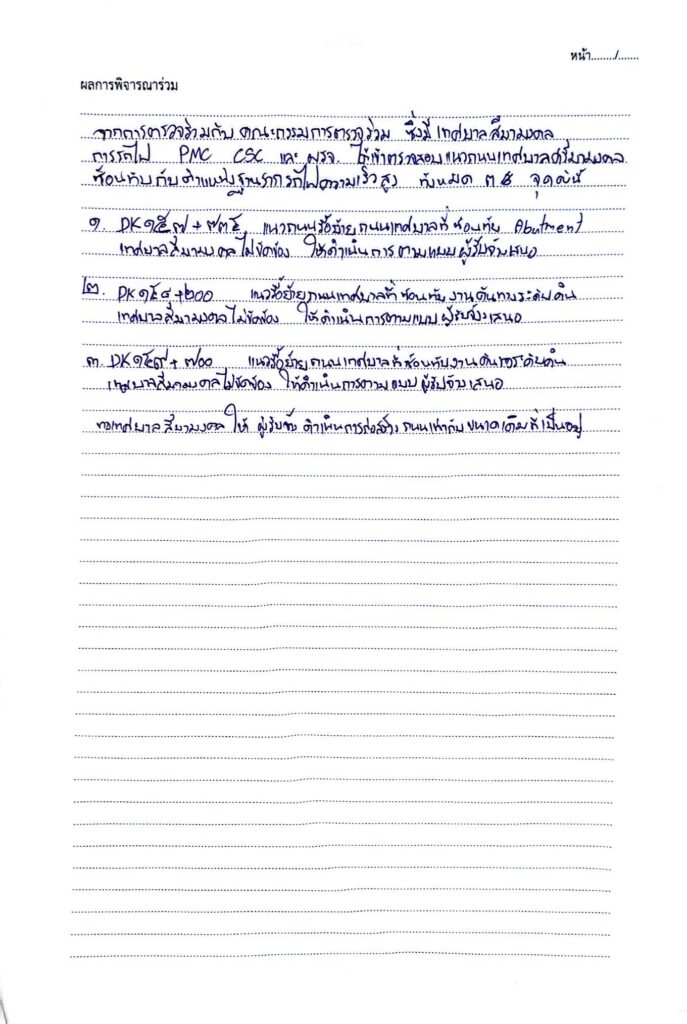 หน้า......./.......
ผลการพิจารณาร่วม
จากการตรวจร่วมกับ คณะกรรมการตรวจร่วม ซึ่งมี เทศบาลสีมามงคล
การรถไฟ PMC CSC และ ผรจ. ได้เข้าตรวจสอบแนวถนนเทศบาลสีมามงคล
ซ้อนทับกับตำแหน่งฐานรากรถไฟความเร็วสูง ทั้งหมด ๓ จุดดังนี้
๑. DK๑๕๗+๗๓๕ แนวถนนรื้อย้ายถนนเทศบาลที่ซ้อนทับ Abutment
เทศบาลสีมามงคลไม่ขัดข้อง ให้ดำเนินการตามแบบผู้รับจ้างเสนอ
๒. DK๑๕๘+๒๐๐ แนวรื้อย้ายถนนเทศบาลที่ซ้อนทับงานคันทางระดับดิน
เทศบาลสีมามงคลไม่ขัดข้อง ให้ดำเนินการตามแบบผู้รับจ้างเสนอ
๓. DK๑๕๙+๗๐๐ แนวรื้อย้ายถนนเทศบาลที่ซ้อนทับงานคันทางระดับดิน
เทศบาลสีมามงคลไม่ขัดข้อง ให้ดำเนินการตามแบบผู้รับจ้างเสนอ
ทางเทศบาลสีมามงคลให้ ผู้รับจ้าง ดำเนินการก่อสร้างถนนเท่ากับขนาดเดิมที่เป็นอยู่